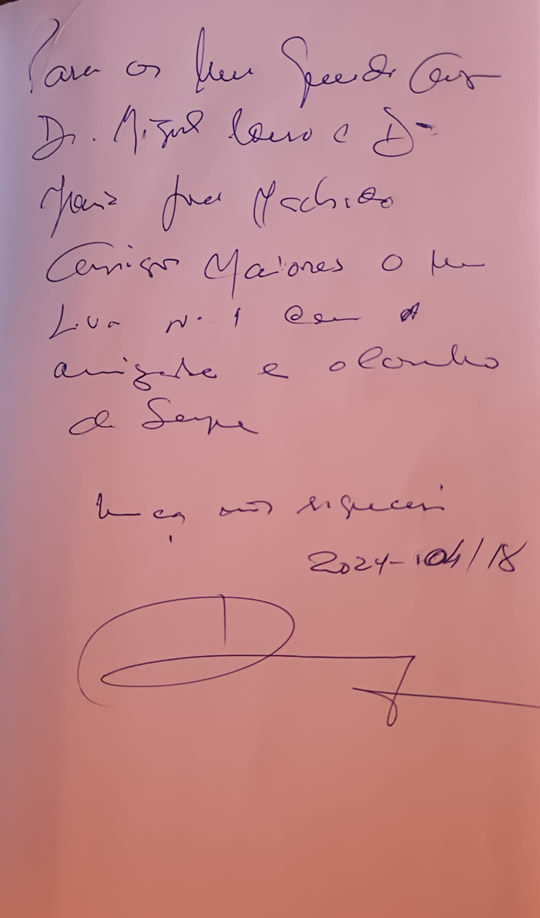 Para os Meus Grandes
Dr. Miguel Louro e Dra
Maria José Machado
Amigos Maiores o meu
Livro nº 1 Com a
amizade e o carinho
de Sempre
nunca vos esquecerei
2024-04/18